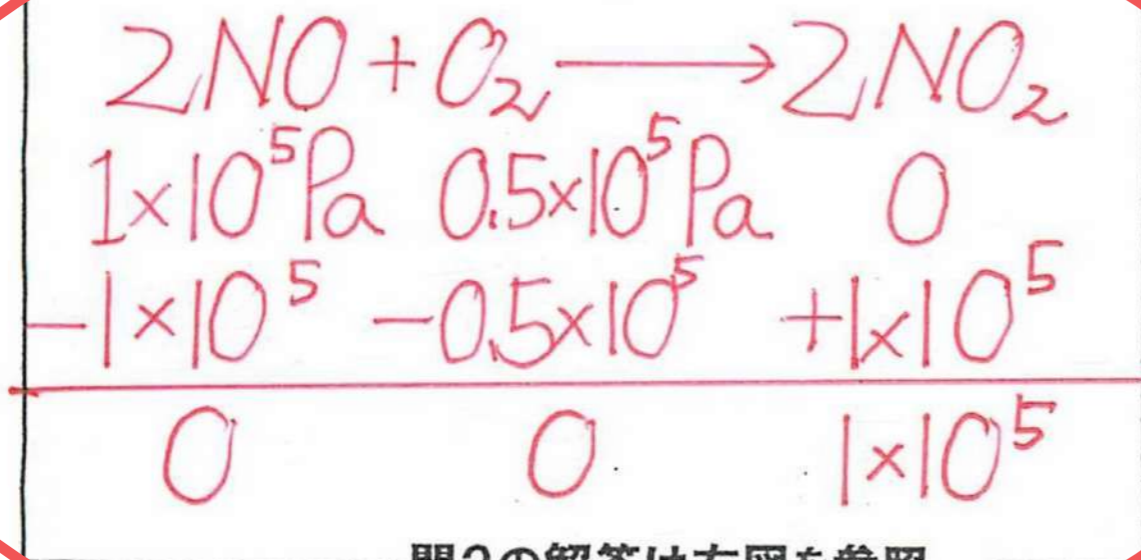 2NO + O₂ ⟶ 2NO₂
1×10⁵Pa 0.5×10⁵Pa 0
−1×10⁵ −0.5×10⁵ +1×10⁵
0 0 1×10⁵